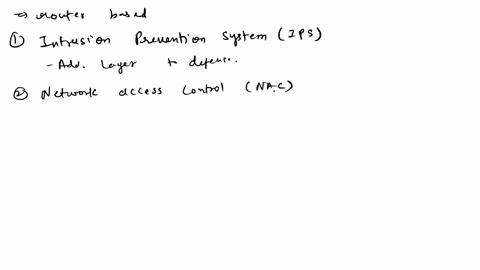 ⇒ router based
① Intrusion Prevention System (IPS)
- Add. layer to defense.
② Network access control (NAC)